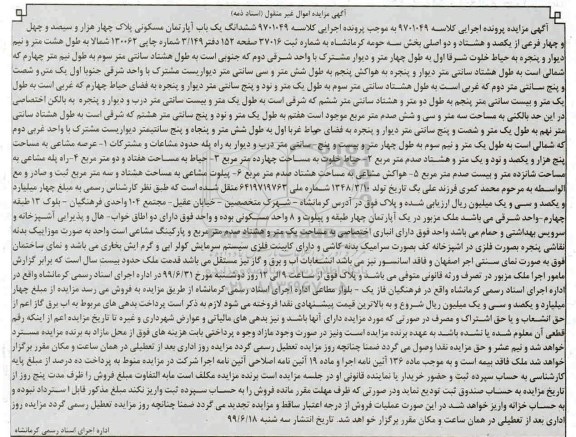 آگهی مزایده اموال غیر منقول (اسناد ذمه)
آگهی مزایده پرونده اجرایی کلاسه ۹۷۰۱۰۴۹ به موجب پرونده اجرایی کلاسه ۹۷۰۱۰۴۹ ششدانگ یک باب آپارتمان مسکونی پلاک چهار هزار و سیصد و چهل
و چهار فرعی از یکصد و هشتاد و دو اصلی بخش سه حومه کرمانشاه به شماره ثبت ۳۷۰۱۶ صفحه ۱۵۳ دفتر ۳/۱۴۹ شماره چاپی ۱۳۰۰۶۲ شمالا به طول هشت متر و نیم
دیوار و پنجره به حیاط خلوت شرقا اول به طول چهار متر و دیوار مشترک با واحد شرقی دوم که جنوبی است به طول هشتاد سانتی متر سوم به طول نیم متر چهارم که
شمالی است به طول هشتاد سانتی متر دیوار و پنجره به هواکش پنجم به طول شش متر و سی سانتی متر دیواریست مشترک با واحد شرقی جنوبا اول یک متر و شصت
و پنج سانتی متر دوم که غربی است به طول هشتاد سانتی متر سوم به طول یک متر و نود و پنج سانتی متر دیوار و پنجره به فضای حیاط چهارم که غربی است به طول
یک متر و بیست سانتی متر پنجم به طول دو متر و هشتاد سانتی متر ششم که شرقی است به طول یک متر و بیست سانتی متر درب و دیوار و پنجره به بالکن اختصاصی
در این حد بالکنی به مساحت سه متر و سی و شش صدم متر مربع موجود است هفتم به طول یک متر و نود و پنج سانتی متر هشتم که شرقی است به طول هشتاد سانتی
متر نهم به طول یک متر و شصت و پنج سانتی متر دیوار و پنجره به فضای حیاط غربا اول به طول شش متر و پنجاه و پنج سانتیمتر دیواریست مشترک با واحد غربی دوم
که شمالی است به طول یک متر و نیم سوم به طول چهار متر و سانتی متر درب و دیوار به راه پله حدود مشاعات و مشترکات ۱- عرصه مشاعی به مساحت
پنج هزار و یکصد و نود و یک متر و هشتاد صدم متر مربع خلوت به مساحت چهارده متر مربع ۳- حیاط به مساحت هفتاد و دو متر مربع ۴-راه پله مشاعی به
مساحت شانزده متر و بیست صدم متر مربع ۵- هواکش مشاعی به مساحت هشتاد صدم متر مربع ۶- پیلوت مشاعی به مساحت هشتاد و سه متر مربع ثبت و صادر و مع
الواسطه به مرحوم محمد کمری فرزند علی بگ تاریخ تولد ۱۳۴۸/۳/۱۰ شماره ملی ۶۴۱۹۷۱۹۷۶۳ منتقل شده است که طبق نظر کارشناس رسمی به مبلغ چهار میلیارد
و یکصد و سی و یک میلیون ریال ارزیابی شده و پلاک فوق در آدرس کرمانشاه - شهرک متخصصین - خیابان عقیل- مجتمع ۱۰۴ واحدی فرهنگیان - بلوک ۱۳ طبقه
چهارم-واحد شرقی می باشد ملک مزبور در یک آپارتمان چهار طبقه و پیلوت و ۸ واحد مسکونی بوده و واحد فوق دارای دو اطاق خواب- هال و پذیرایی آشپزخانه و
سرویس بهداشتی و حمام می باشد واحد فوق دارای انباری اختصاصی و مساحت یک متر و هشتاد صدم متر مربع و پارکینگ مشاعی است واحد به صورت موزاییک بدنه
نقاشی پنجره بصورت فلزی در آشپزخانه کف بصورت سرامیک بدنه کاشی و دارای کابینت فلزی سیستم سرمایش کولر ابی و گرم ایش بخاری می باشد و نمای ساختمان
فوق به صورت نمای سنتی اجر اصفهان و فاقد اسانسور نیز می باشد انشعابات آب و برق و گاز نیز مستقل می باشد قدمت ملک حدود بیست سال است که برابر گزارش
مامور اجرا ملک مزبور در تصرف ورثه قانونی متوفی می باشد و پلاک فوق از ساعت ۹ الی ۱۲ روز دوشنبه مورخ ۹۹/۶/۳۱ در اداره اجرای اسناد رسمی کرمانشاه واقع در
اداره اجرای اسناد رسمی کرمانشاه واقع در فرهنگیان فاز یک - بلوار مطاعی اداره اجرای اسناد رسمی کرمانشاه از طریق مزایده به فروش می رسد مزایده از مبلغ چهار
میلیارد و یکصد و سی و یک میلیون ریال شروع و به بالاترین قیمت پیشنهادی نقدا فروخته می شود لازم به ذکر است پرداخت بدهی های مربوط به اب برق گاز اعم از
حق انشعاب و یا حق اشتراک و مصرف در صورتی که مورد مزایده دارای آنها باشد و نیز بدهی های مالیاتی و عوارض شهرداری و غیره تا تاریخ مزایده اعم از اینکه رقم
قطعی آن معلوم شده یا نشده باشد به عهده برنده مزایده است ونیز در صورت وجود مازاد وجوه پرداختی بابت هزینه های فوق از محل مازاد به برنده مزایده مسترد
خواهد شد و نیم عشر و حق مزایده نقدا وصول می گردد ضمنا چنانچه روز مزایده تعطیل رسمی گردد مزایده روز اداری بعد از تعطیلی در همان ساعت و مکان مقرر برگزار
خواهد شد ملک فاقد بیمه است و به موجب ماده ۱۳۶ آئین نامه اجرا و ماده ۱۹ آئین نامه اصلاحی آئین نامه اجرا شرکت در مزایده منوط به پرداخت ده درصد از مبلغ پایه
کارشناسی به حساب سپرده ثبت و حضور خریدار یا نماینده قانونی او در جلسه مزایده است برنده مزایده مکلف است مابه التفاوت مبلغ فروش را ظرف مدت پنج روز از
تاریخ مزایده به حساب صندوق ثبت تودیع نماید ودر صورتی که ظرف مهلت مقرر مانده فروش را به حساب سپرده ثبت واریز نکند مبلغ مذکور قابل استرداد نبوده و
به حساب خزانه واریز خواهد شد در این صورت عملیات فروش از درجه اعتبار ساقط و مزایده تجدید می گردد ضمنا چنانچه روز مزایده تعطیل رسمی گردد مزایده روز
اداری بعد از تعطیلی در همان ساعت و مکان مقرر برگزار خواهد شد. تاریخ انتشار سه شنبه ۹۹/۶/۱۸
اداره اجرای اسناد رسمی کرمانشاه